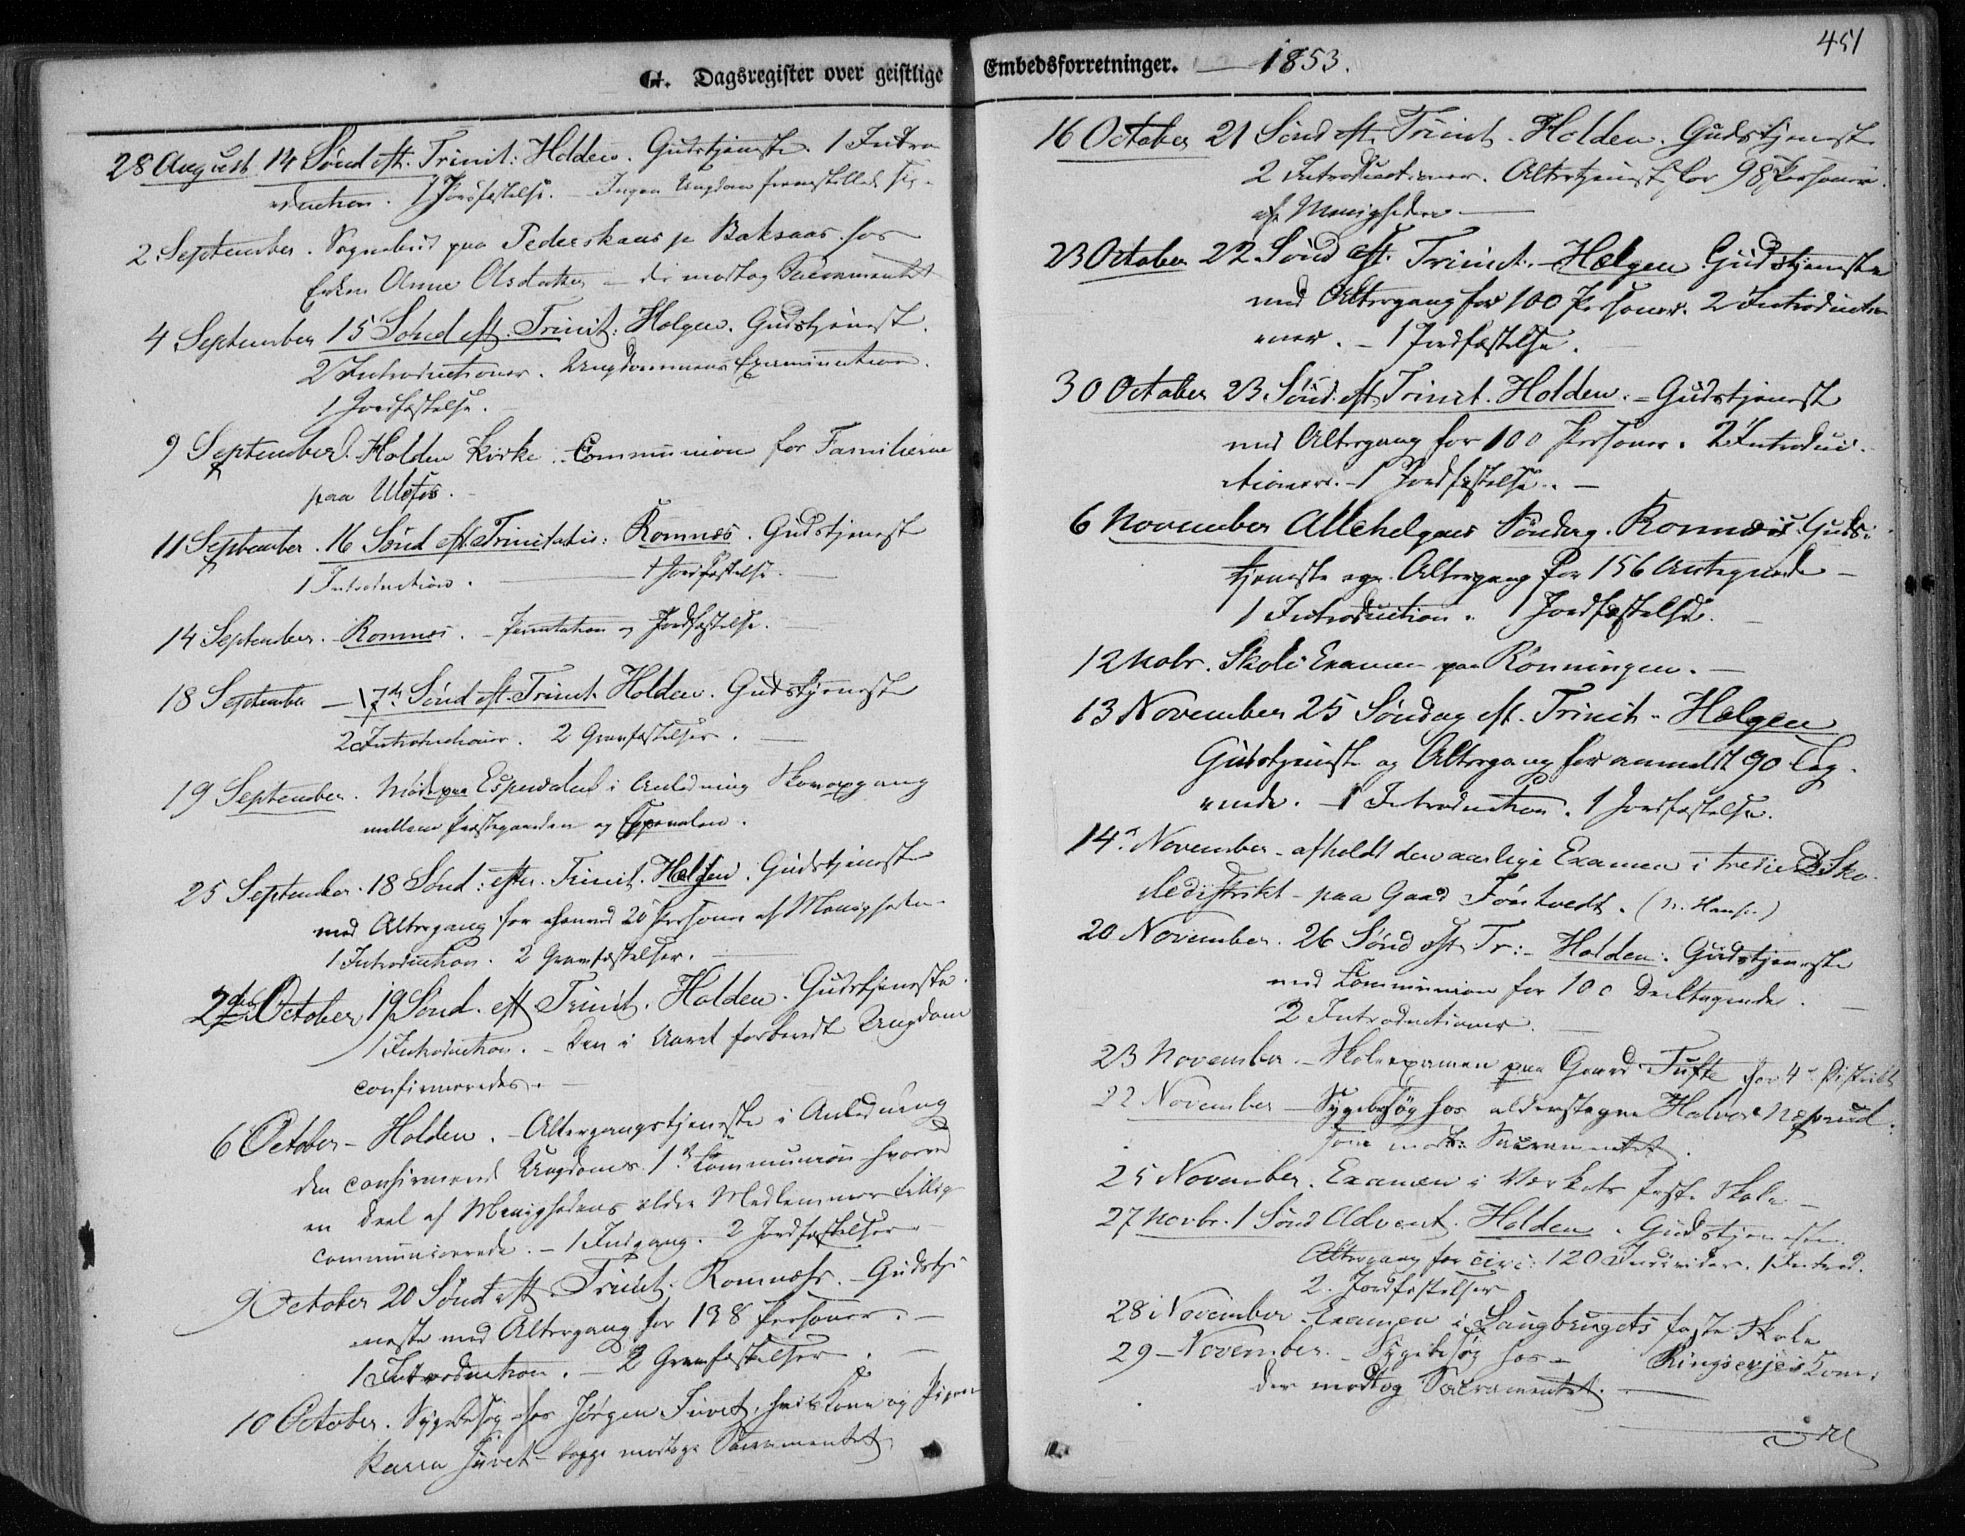 G. Dagsregister over geistlige
28 August 14 Sönd eft. Trinit: Holden. Gudstjeneste. 1 Intro
duction. 1 Jordfæstelse. Ingen Ungdom fremstillede sig.
2 September. Sognebud paa Pederskaas Baksaas hos
Enken Anne Olsdatter — modtog Sacramentet
4 September 15 Sönd eft. Trinit: Helgen. Gudstjenest.
2 Introductioner. Ungdommens Examination.
1 Jordfæstelse.
9 September. Holden Kirke. Communion for Familierne
paa Ulefos.
11 September. 16 Sönd eft Trinitatis: Romnes. Gudstjenest
1 Introduction. — 1 Jordfæstelse.
14 September. Romnes. — og Jordfæstelse.
18 September — 17de Sönd eft. Trinit. Holden. Gudstjeneste
2 Introductioner. 2 Gravfæstelser.
19 September. Möde paa Espevalen i Anledning Skovopgang
mellem Præstegaarden og Espevalen.
25 September. 18 Sönd: efter Trinit. Helgen. Gudstjeneste
med Altergang for 20 Personer af Menigheden
1 Introduction. 2 Gravfæstelser.
2den October 19 Sönd. eft Trinit. Holden. Gudstjeneste.
1 Introduction. — Den i Aaret forberedt Ungdom
confirmeredes.
6 October — Holden. — Altergangstjeneste i Anledning
den confirmerede Ungdoms 1ste Communion hvorved
en Deel af Menighedens ældre Medlemmer tillige
communicerede. — 1 Indgang. 2 Jordfæstelser
9 October 20 Sönd eft. Trinit: Romnæs. — Gudstje
neste med Altergang for 138 Personer. —
1 Introduction. — 2 Gravfæstelser.
10 October. Sygebesög hos Jörgen Juvet, hvis Kone og Pigen
Karen Juvet — begge modtoge Sacramentet
Embedsforretninger. — 1853.
451
16 October 21 Sönd eft. Trinit. Holden. Gudstjenest
2 Introductioner. Altertjenest for 98 Personer
af Menigheden —
23 October 22 Sönd eft. Trinit. — Helgen Gudstjeneste
med Altergang for 100 Personer. 2 Introductio
ner. — 1 Jordfæstelse.
30 October 23 Sönd. eft Trinit. Holden. — Gudstjenest
med Altergang for 100 Personer. 2 Introduc
tioner. — 1 Jordfæstelse. —
6 November Allehelgens Söndag. Romnæs. Guds
tjeneste og Altergang for 156 Antegnede —
1 Introduction. 1 Jordfæstelse.
12 Nobr. Skole Examen paa Rönningen. —
13 November 25 Söndag eft. Trinit. Helgen
Gudstjeneste og Altergang for anmeldt 90 Deltag
ende. — 1 Introduction. 1 Jordfæstelse.
14. November — afholdt den aarlige Examen i tredie Sko
ledistrikt — paa Gaard Töntvedt. (N. Hansen)
20 November. 26 Sönd eft Tr: — Holden. Gudstjeneste
med Communion for 100 Deeltagende.
2 Introductioner.
23 November. — Skoleexamen paa Gaard Tufte for 4de Distrikt
22 November — Sygebesög hos alderstegne Halvor Næsrud.
som modtog Sacramentet.
25 November. Examen i Værkets faste Skole —
27 Novbr. 1 Sönd Advent. Holden. Gudstjeneste.
Altergang for circ: 120 Individer. 1 Introd.
2. Jordfæstelser
28 November. Examen i Langbrugets faste Skole
29 — November. — Sygebesög hos — Ringsevjes Kone.
der modtog Sacramentet. —